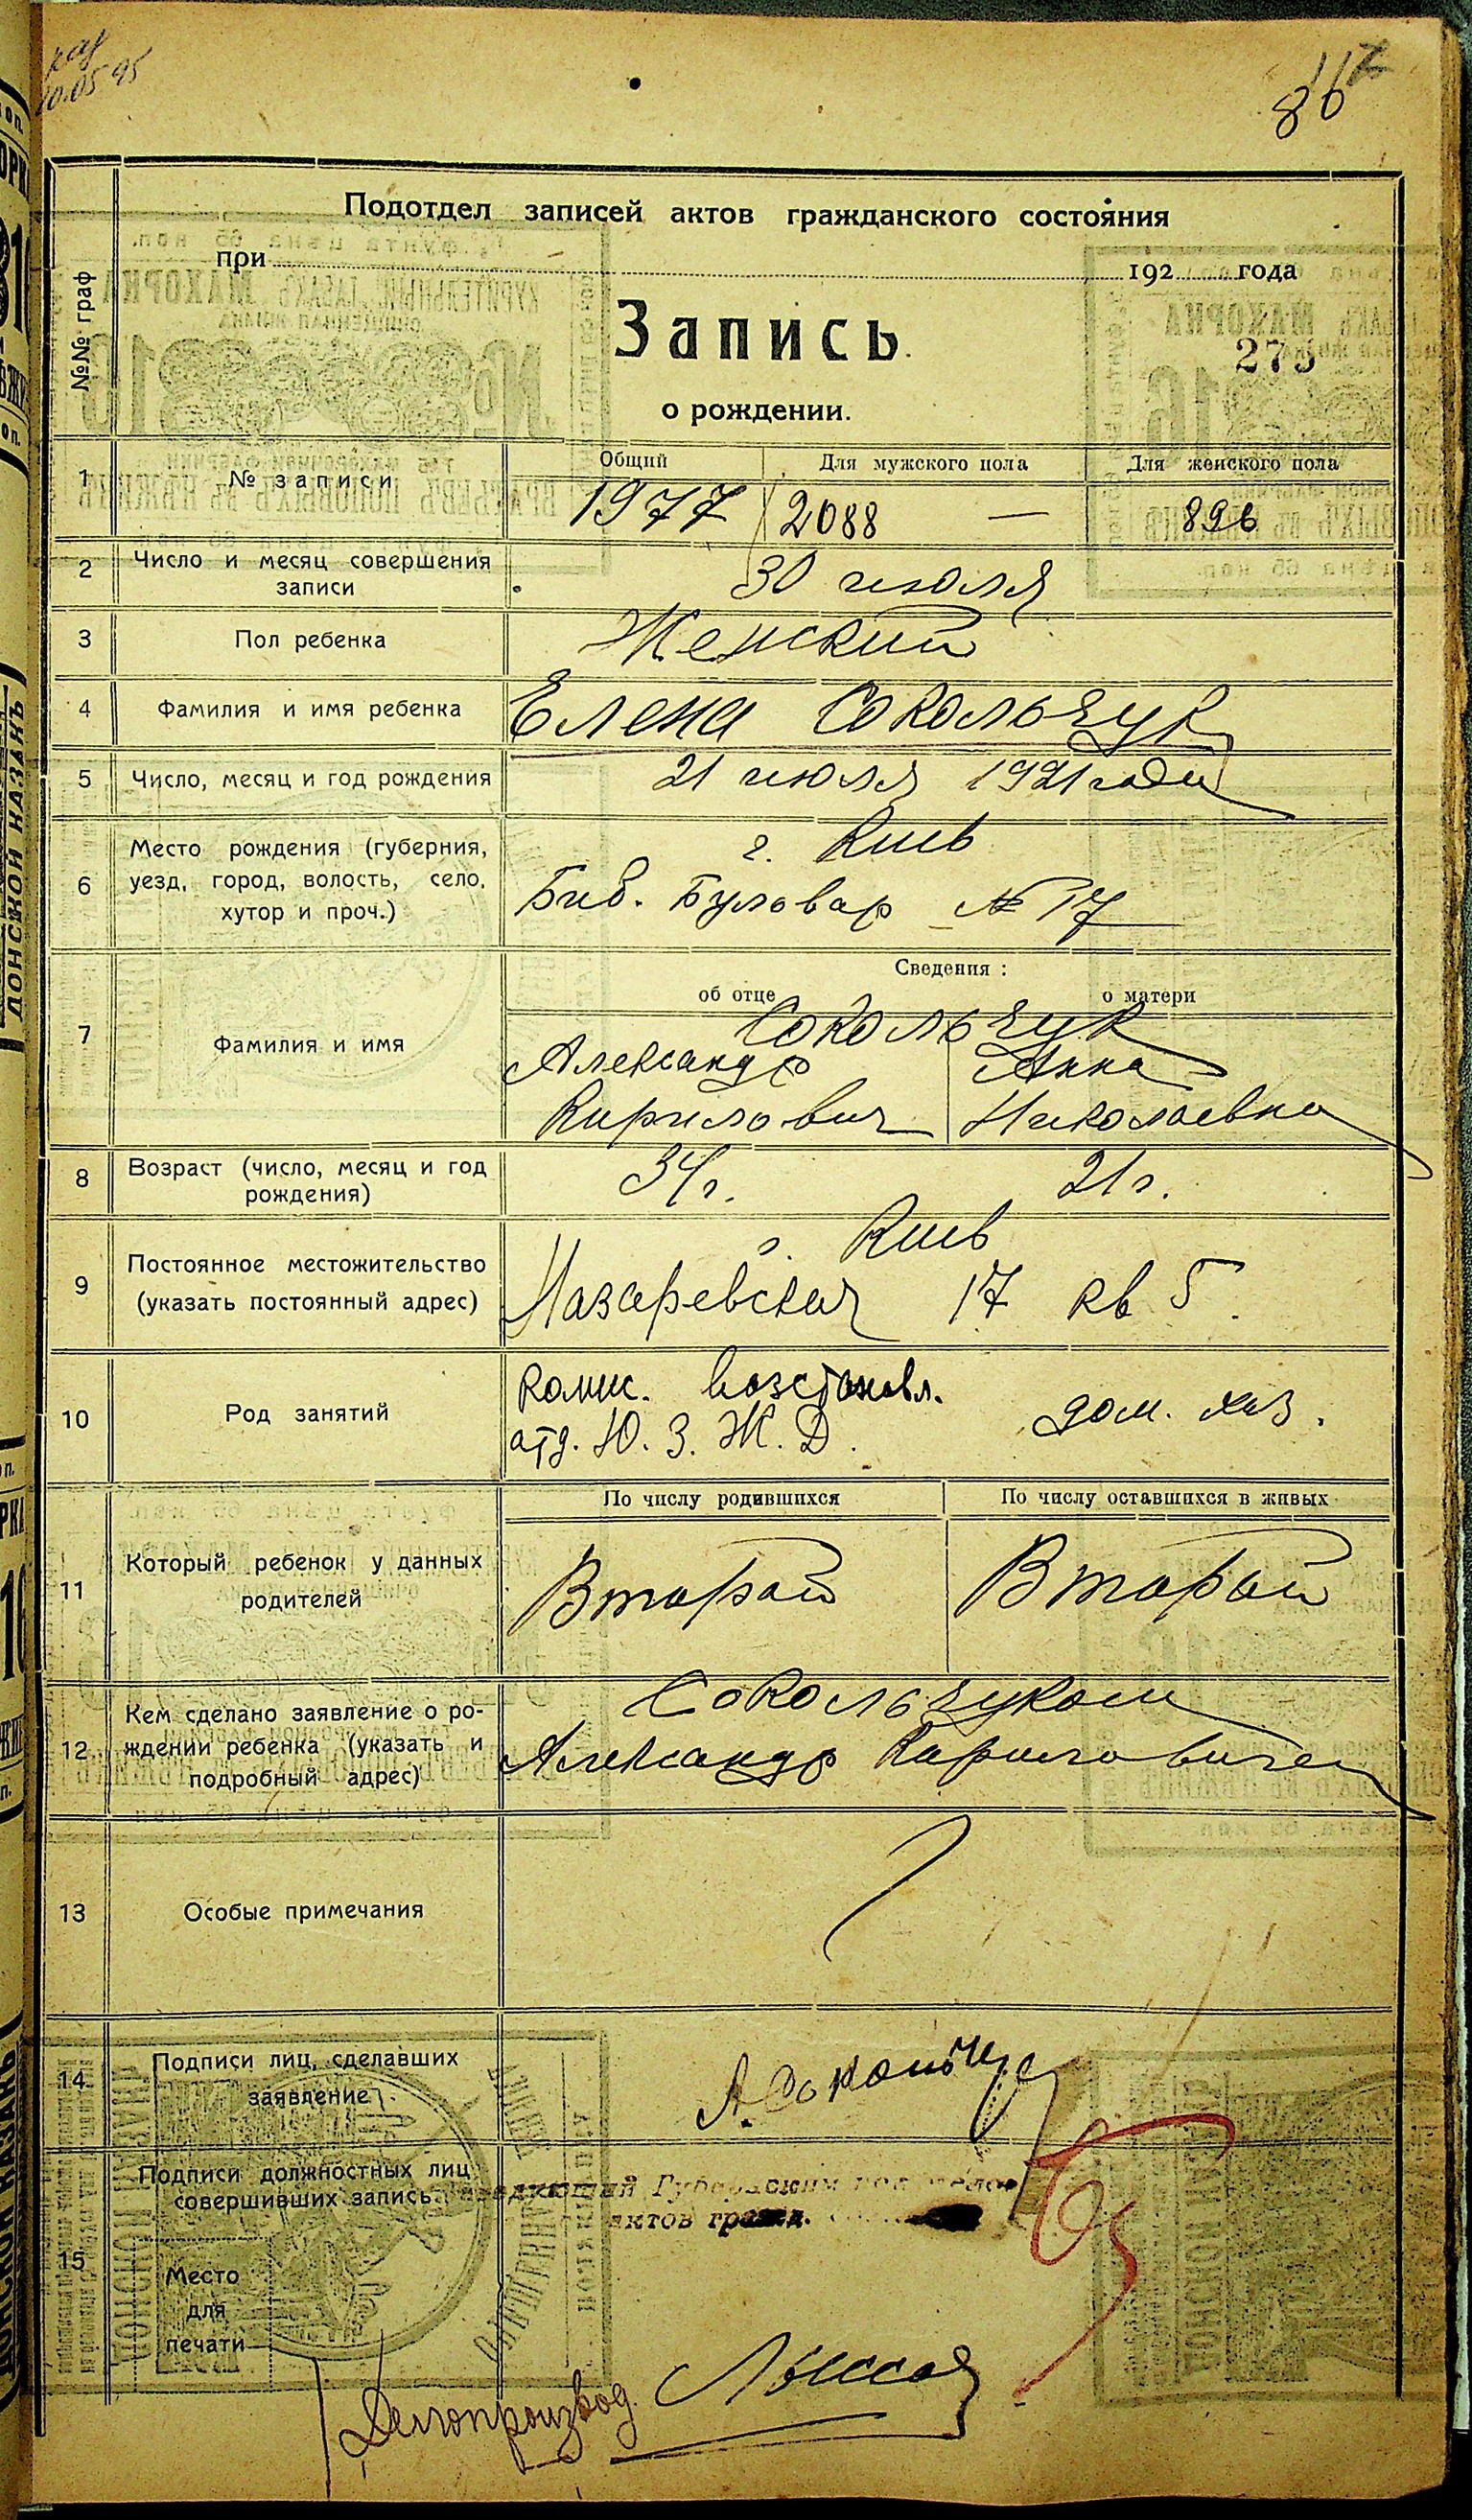 10.05 95
117
86
Подотдел записей актов гражданского состояния
при 192 года
№№ граф
Запись
275
о рождении.
1 № записи Общий Для мужского пола Для женского пола
1977 2088 — 896
2 Число и месяц совершения записи 30 июля
3 Пол ребенка Женский
4 Фамилия и имя ребенка Елена Сокольчук
5 Число, месяц и год рождения 21 июля 1921 года
6 Место рождения (губерния, уезд, город, волость, село, хутор и проч.)
г. Киев
Биб. Бульвар № 17
Сведения:
об отце о матери
7 Фамилия и имя
Сокольчук
Александр Анна
Кирилович Николаевна
8 Возраст (число, месяц и год рождения) 34 г. 21 г.
9 Постоянное местожительство (указать постоянный адрес)
г. Киев
Назаревская 17 кв 5.
10 Род занятий
комис. возстановл. дом. хоз.
отд. Ю. З. Ж. Д.
По числу родившихся По числу оставшихся в живых
11 Который ребенок у данных родителей Второй Второй
12 Кем сделано заявление о рождении ребенка (указать и подробный адрес)
Сокольчуком
Александр Кириловичем
13 Особые примечания
14 Подписи лиц, сделавших заявление
15 Подписи должностных лиц совершивших запись
актов гражд.
Место
для
печати
Делопроизвод.